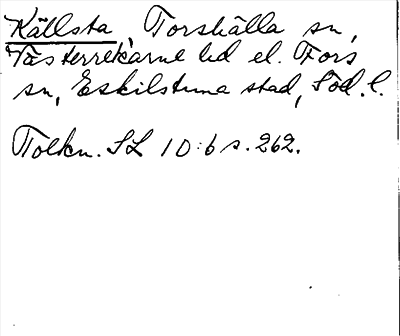 Källsta, Torshälla sn,
Västerrekarne hd el. Fors
sn, Eskilstuna stad, Söd. l.
Tolkn. SL 10:6 s. 262.